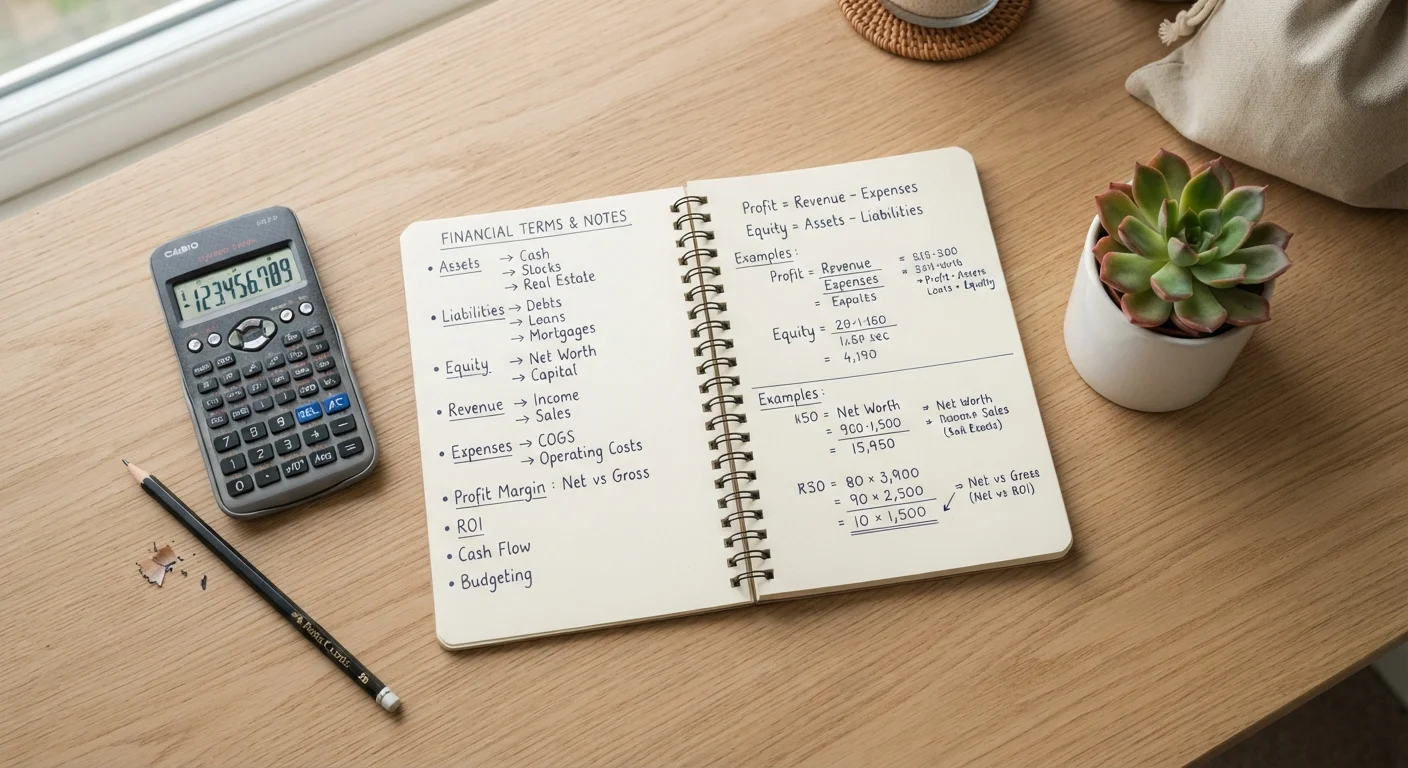 CASIO
FINANCIAL TERMS & NOTES
• Assets → Cash
→ Stocks
→ Real Estate
• Liabilities → Debts
→ Loans
→ Mortgages
• Equity → Net Worth
→ Capital
• Revenue → Income
→ Sales
• Expenses → COGS
→ Operating Costs
• Profit Margin : Net vs Gross
• ROI
• Cash Flow
• Budgeting
Profit = Revenue − Expenses
Equity = Assets − Liabilities
Examples:
Profit = Revenue
Expenses
= Expates
→ Profit - Assets
Loans - Equity
Equity =
= 4,190
Examples:
= Net Worth
= 900-1,500
= 15,950
→ Net Worth
Sales
= 80 × 3,900
= 90 × 2,500
= 10 × 1,500
→ Net vs Gress
(Net vs ROI)
7 8 9 DEL AC
1 2 3
0